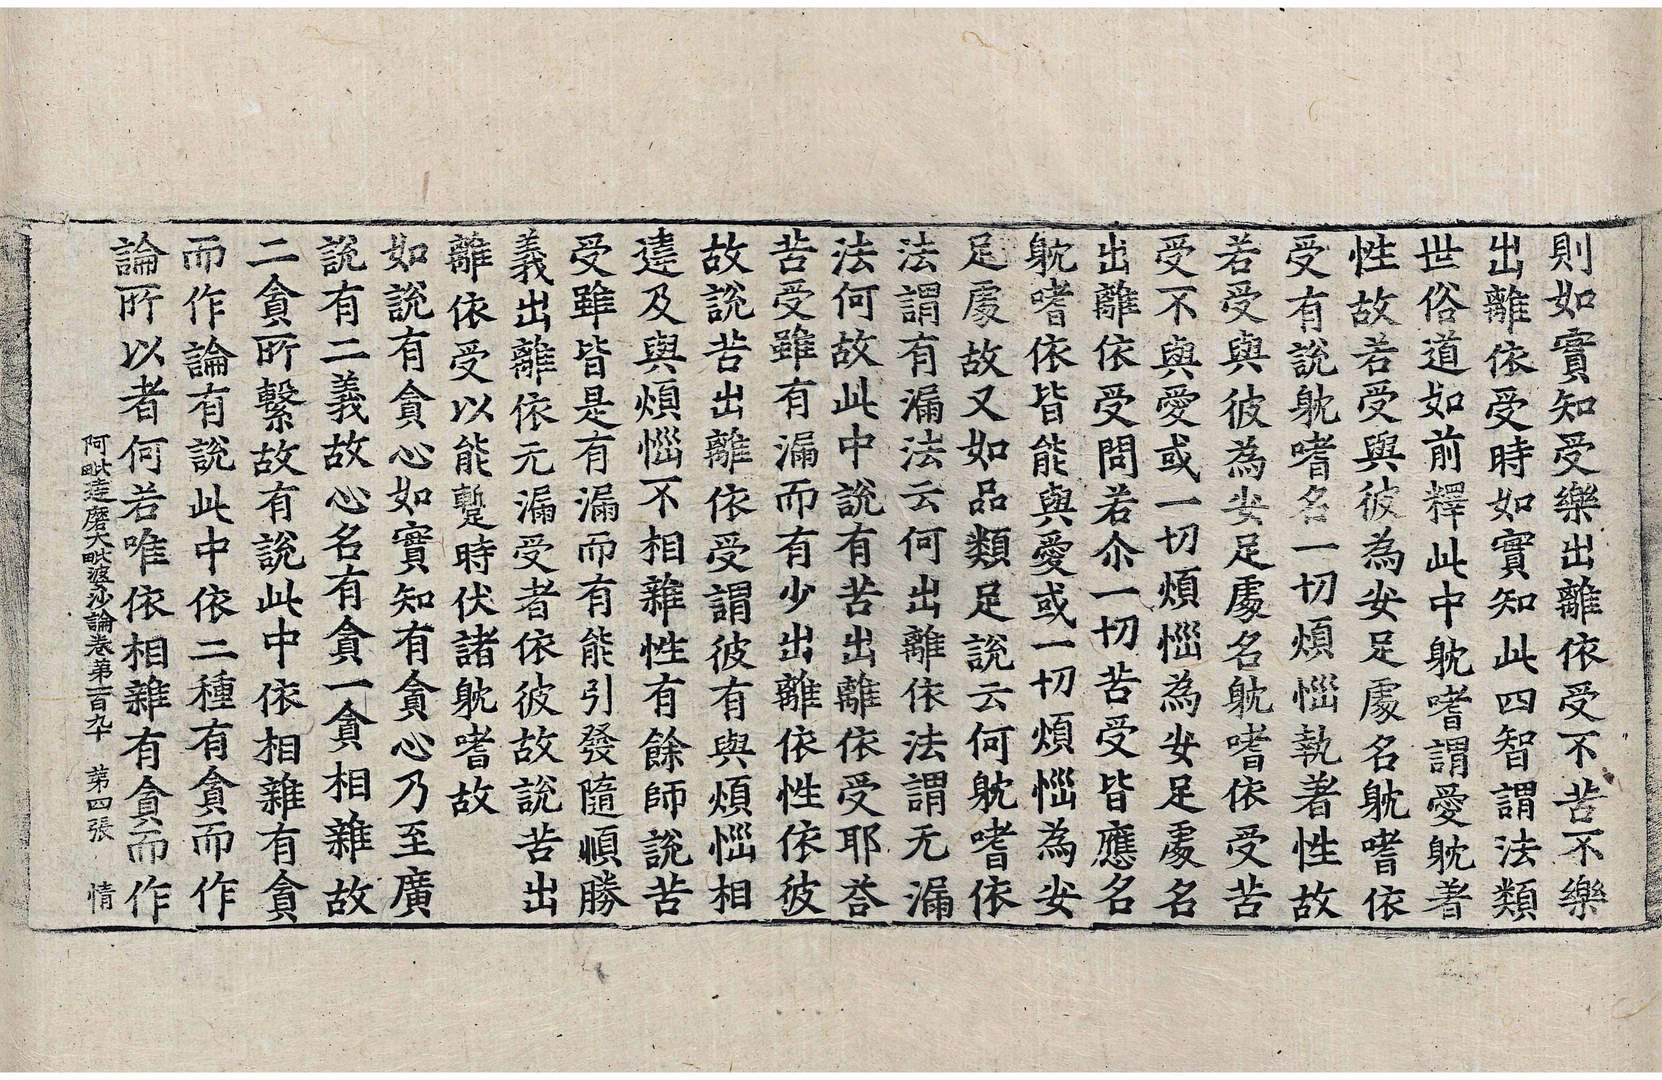 則如實知受樂出離依受不苦不樂
出離依受時如實知此四智謂法類
世俗道如前釋此中躭嗜謂愛躭著
性故若受與彼為安足處名躭嗜依
受有說躭嗜名一切煩惱執著性故
若受與彼為安足處名躭嗜依受苦
受不與愛或一切煩惱為安足處名
出離依受問若尒一切苦受皆應名
躭嗜依皆能與愛或一切煩惱為安
足處故又如品類足說云何躭嗜依
法謂有漏法云何出離依法謂无漏
法何故此中說有苦出離依受耶荅
苦受雖有漏而有少出離依性依彼
故說苦出離依受謂彼有與煩惱相
違及與煩惱不相雜性有餘師說苦
受雖皆是有漏而有能引發隨順勝
義出離依无漏受者依彼故說苦出
離依受以能蹔時伏諸躭嗜故
如說有貪心如實知有貪心乃至廣
說有二義故心名有貪一貪相雜故
二貪所繫故有說此中依相雜有貪
而作論有說此中依二種有貪而作
論所以者何若唯依相雜有貪而作
阿毗達磨大毗婆沙論卷第一百九十 第四張 情